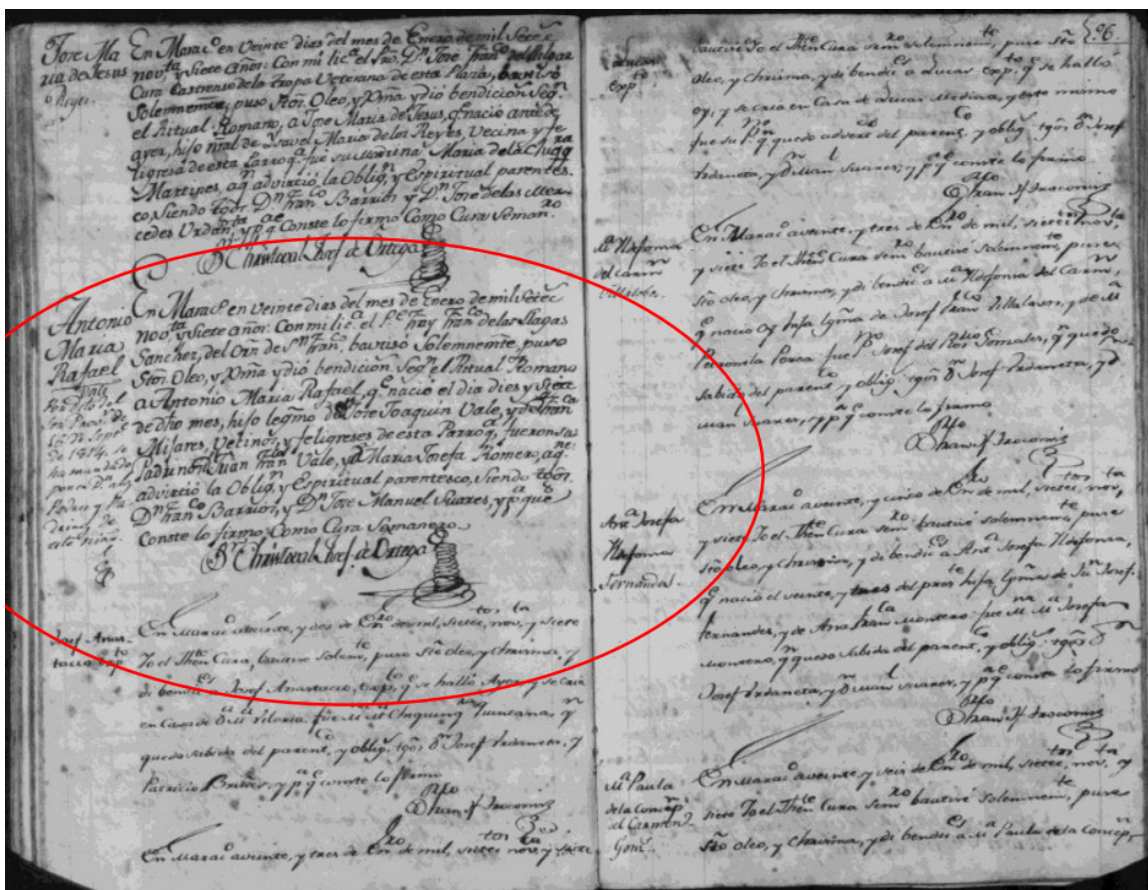 Jose Ma
ria de Jesus
Reyes.
En Marac.o en Veinte dias del mes de Enero de mil Setec
nov.ta y Siete años: Con mi lic.a el Pro. D.n José Fran.co
Cura Castrense de la tropa Veterana de esta Plaza, bautisó
Solemnemte, puso Stos. Oleo, y Xpma y dio bendicion Seg.n
el Ritual Romano, a Jose Maria de Jesus, q.e nació antes de
ayer, hijo nral de Ysavel Maria de los Reyes, Vecina y fe-
ligresa de esta Parroq.a fue su Madrina Maria de la
Martines, a q.n advirtió la Oblig.n y Espiritual parentes-
co, Siendo tgos. D.n Fran.co Barrios y D.n Jose de las Mer-
cedes Urdan.ta y p.a q.e Conste lo firmo Como Cura Seman.ro
B.r Christoval Josef. de Ortega
Antonio
Maria
Rafael
Vale
En Marac.o en Veinte dias del mes de Enero de mil Setec
nov.ta y Siete años: Con mi lic.a el P.e Fray Fran.co de las Llagas
Sanchez, del Orn de S.n Fran.co, bautisó Solemnemte, puso
Stos. Oleo, y Xpma y dió bendicion Seg.n el Ritual Romano
a Antonio Maria Rafael, q.e nació el dia dies y Siete
de dho mes, hijo legmo de Jose Joaquin Vale, y de Fran.ca
Mijares, Vecinos, y feligreses de esta Parroq.a, fueron sus
Padrinos Juan Fran.co Vale, y Maria Josefa Romero, a q.nes
advirtió la Oblig.n y Espiritual parentesco, Siendo tgos.
D.n Fran.co Barrios, y D.n Jose Manuel Suares, y p.a que
Conste lo firmo Como Cura Semanero
B.r Christoval Josef. de Ortega
Por Dto del
Sor Provr de
16 de Septe
de 1814, se
ha mandado
Josef Anas-
tacio exp.to
En Marac.o a veinte, y dos de En.ro de mil, sietec.tos nov.ta y siete
Yo el Then.te Cura, bautisé solem.te, puse Sto oleo, y chrisma, y
di bendic.es a Josef Anastacio, exp.to q.e se halló Ayer, y se cria
en Casa de
quedo sabida del parent.co, y oblig.n tgos D.n Josef Urdaneta, y
Patricio y p.a q.e conste lo firmo
En Marac.o a veinte, y tres de En.ro de mil, sietec.tos nov.ta y siete
96.
Lucas
exp.to
bautisé Yo el Then.te Cura sem.ro solemnem.te, puse Sto
oleo, y chrisma, y di bendic.es a Lucas exp.to q.e se halló
oy, y se cria en Casa de Lucas Medina, y este mismo
fue su P.no q.n quedo advert.do del parent.co y oblig.n tgos D.n Josef
Urdaneta, y D.n Man.l Suarez, y p.a q.e conste lo firmo
M.a Yldefonsa
del Carm.n
Villalobos.
En Marac.o a veinte, y tres de En.ro de mil, sietec.tos nov.ta
y siete Yo el Then.te Cura sem.ro bautisé solemnem.te, puse
Sto oleo, y chrisma, y di bendic.es a M.a Yldefonsa del Carm.n,
q.e nacio oy hija lgma de Josef Fran.co Villalobos, y de M.a
Petronila Perea fue P.no Josef del Ros.o Gonsales, q.n quedo
sabido del parent.co y oblig.n tgos D.n Josef Urdaneta, y D.n
Man.l Suarez, y p.a q.e conste lo firmo
Ana Josefa
Yldefonsa
Fernandes.
En Marac.o a veinte, y cinco de En.ro de mil, sietec.tos nov.ta
y siete Yo el Then.te Cura sem.ro bautisé solemnem.te, puse
Sto oleo, y chrisma, y di bendic.es a Ana Josefa Yldefonsa,
q.e nacio el veinte, y tres del pres.te hija lgma de Jn Josef
Fernandes, y de Ana Fran.ca Montero fue M.na M.a Josefa
Montero, q.n quedo sabida del parent.co y oblig.n tgos D.n
Josef Urdaneta, y D.n Man.l Suarez, y p.a q.e conste lo firmo
M.a Paula
de la Concep.n
del Carmen
Gonz.
En Marac.o a veinte, y seis de En.ro de mil, sietec.tos nov.ta y
siete Yo el Then.te Cura sem.ro bautisé solemnem.te, puse
Sto oleo, y chrisma, y di bendic.es a M.a Paula de la Concep.n,